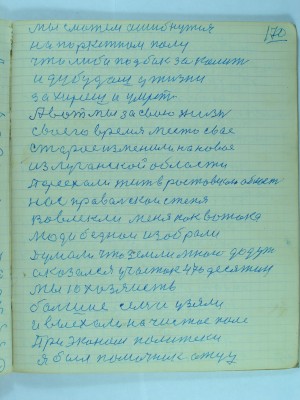 170
мы сможем ошибнутся
на поркетном полу
что либа подбык за калит
и дубудаш ужизни
за хирещ и умрет
А вот мы за свою жизн
своего время место свае
старое изменили на новое
из луганской области
переехали жит в ростовскои област
нас правалсии стеня
вовлекли меня как вожака
моди бедном изобрали
думали что земли мной дадут
оказался участок 440 десятин
мы 10 хозяйств
большие семи узяли
и выехали на чистое поле
При эконом политеки
я был помочник отцу